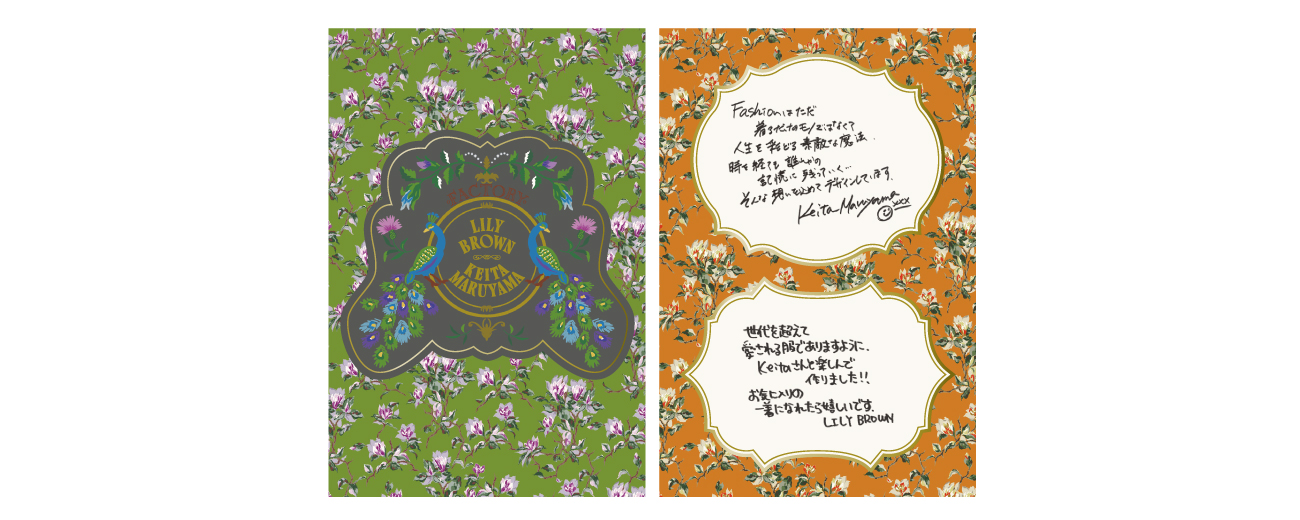 FACTORY
LILY
BROWN
KEITA
MARUYAMA
Fashionはただ
着るだけのモノではなくて
人生を彩どる素敵な魔法
時を経ても誰かの
記憶に残っていく…
そんな想いを込めてデザインしています.
Keita Maruyama
xxx
世代を超えて
愛される服でありますように.
Keitaさんと楽しんで
作りました!!
お気に入りの
一着になれたら嬉しいです.
LILY BROWN